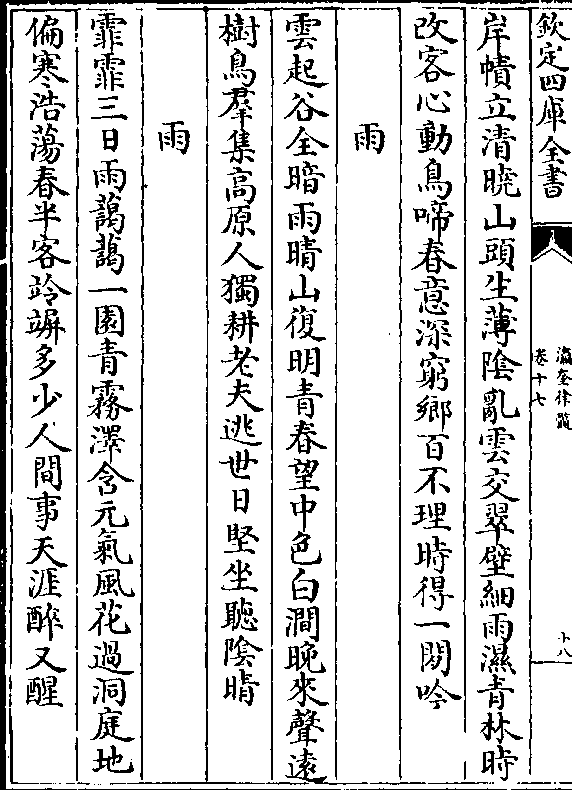 欽定四庫全書
瀛奎律髓
卷十七
十八
岸幘立清曉山頭生薄陰亂雲交翠壁細雨濕青林時
改客心動鳥啼春意深窮鄉百不理時得一閑吟
雨
雲起谷全暗雨晴山復明青春望中色白澗晚來聲遠
樹鳥羣集高原人獨耕老夫逃世日堅坐聽陰晴
雨
霏霏三日雨藹藹一園青霧澤含元氣風花過洞庭地
偏寒浩蕩春半客竛竮多少人間事天涯醉又醒